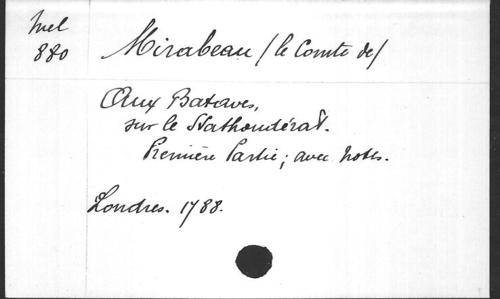 Mel
880
Mirabeau / le Comte de /
Aux Bataves,
sur le Stathoudérat.
Première Partie; avec notes.
Londres. 1788.